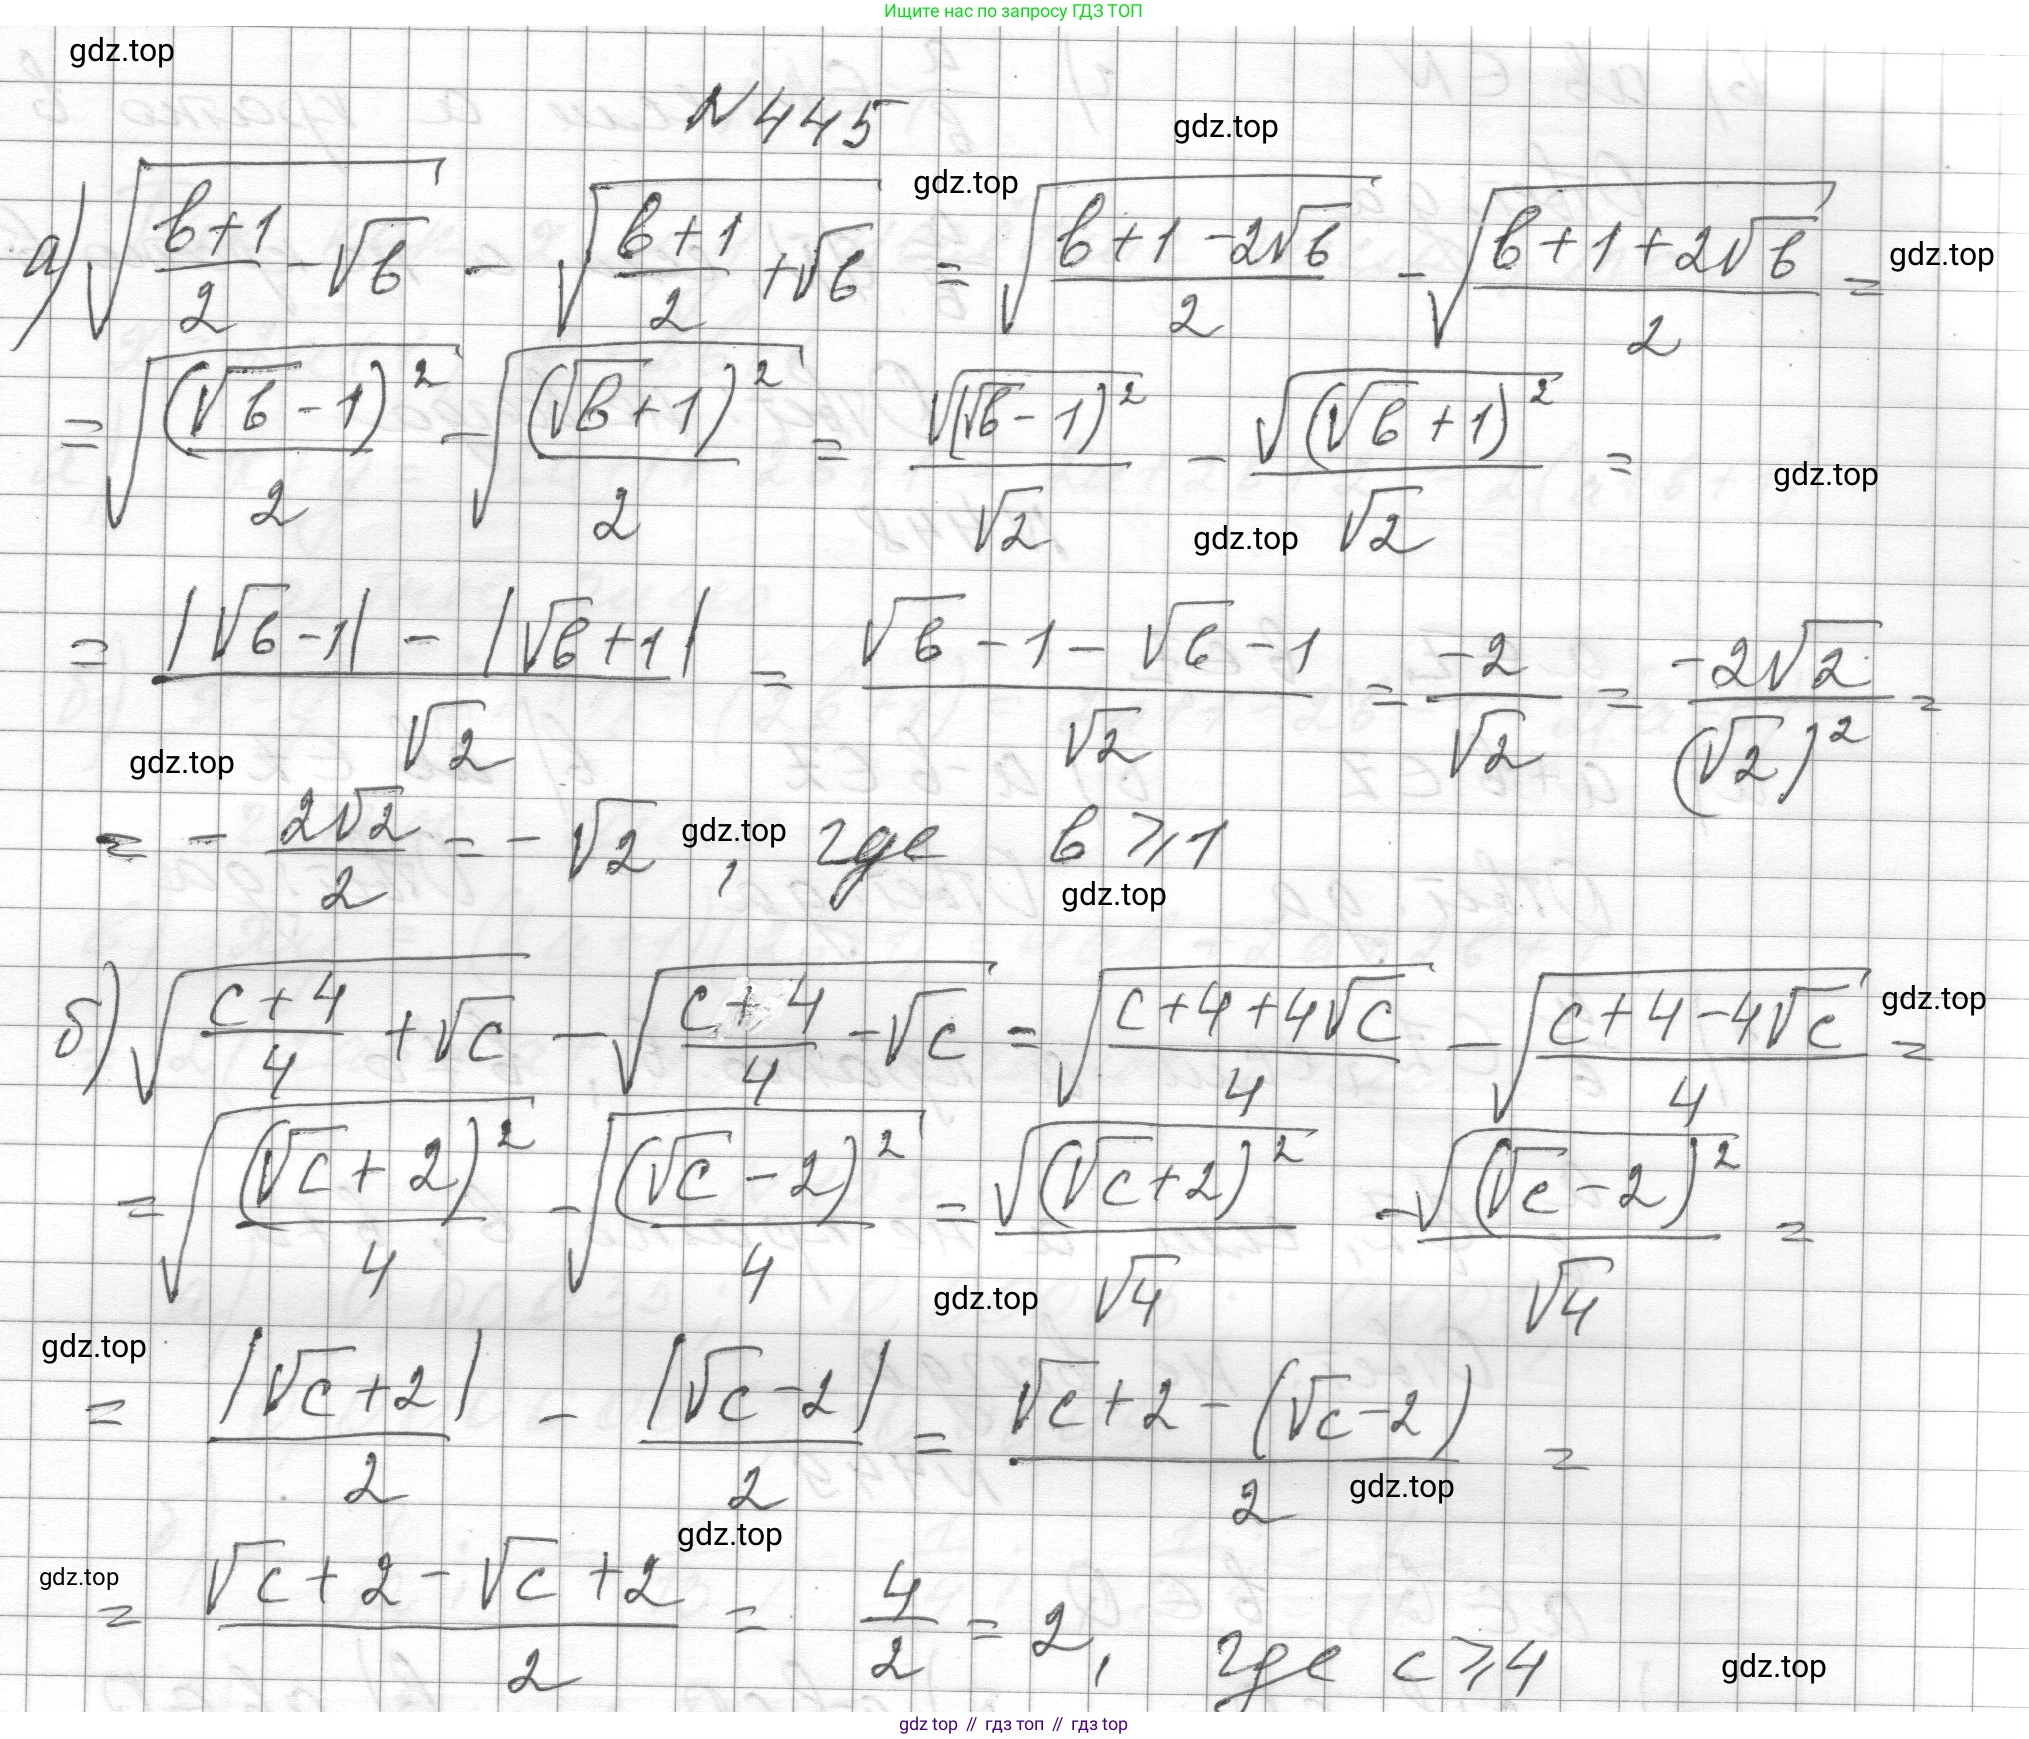 Ищите нас по запросу ГДЗ ТОП
gdz.top
N 445
gdz.top
gdz.top
а) √((b+1)/2 - √b) - √((b+1)/2 + √b) = √((b+1-2√b)/2) - √((b+1+2√b)/2) =
gdz.top
= √((√b-1)²/2) - √((√b+1)²/2) = √((√b-1)²)/√2 - √((√b+1)²)/√2 =
gdz.top
gdz.top
= (|√b-1| - |√b+1|)/√2 = (√b-1-√b-1)/√2 = -2/√2 = -2√2/(√2)² =
gdz.top
= - 2√2/2 = - √2, где b ⩾ 1
gdz.top
gdz.top
б) √((c+4)/4 + √c) - √((c+4)/4 - √c) = √((c+4+4√c)/4) - √((c+4-4√c)/4) =
gdz.top
= √((√c+2)²/4) - √((√c-2)²/4) = √((√c+2)²)/√4 - √((√c-2)²)/√4 =
gdz.top
gdz.top
= |√c+2|/2 - |√c-2|/2 = (√c+2-(√c-2))/2 =
gdz.top
gdz.top
gdz.top
= (√c+2-√c+2)/2 = 4/2 = 2, где c ⩾ 4
gdz.top
gdz top // гдз топ // гдз top